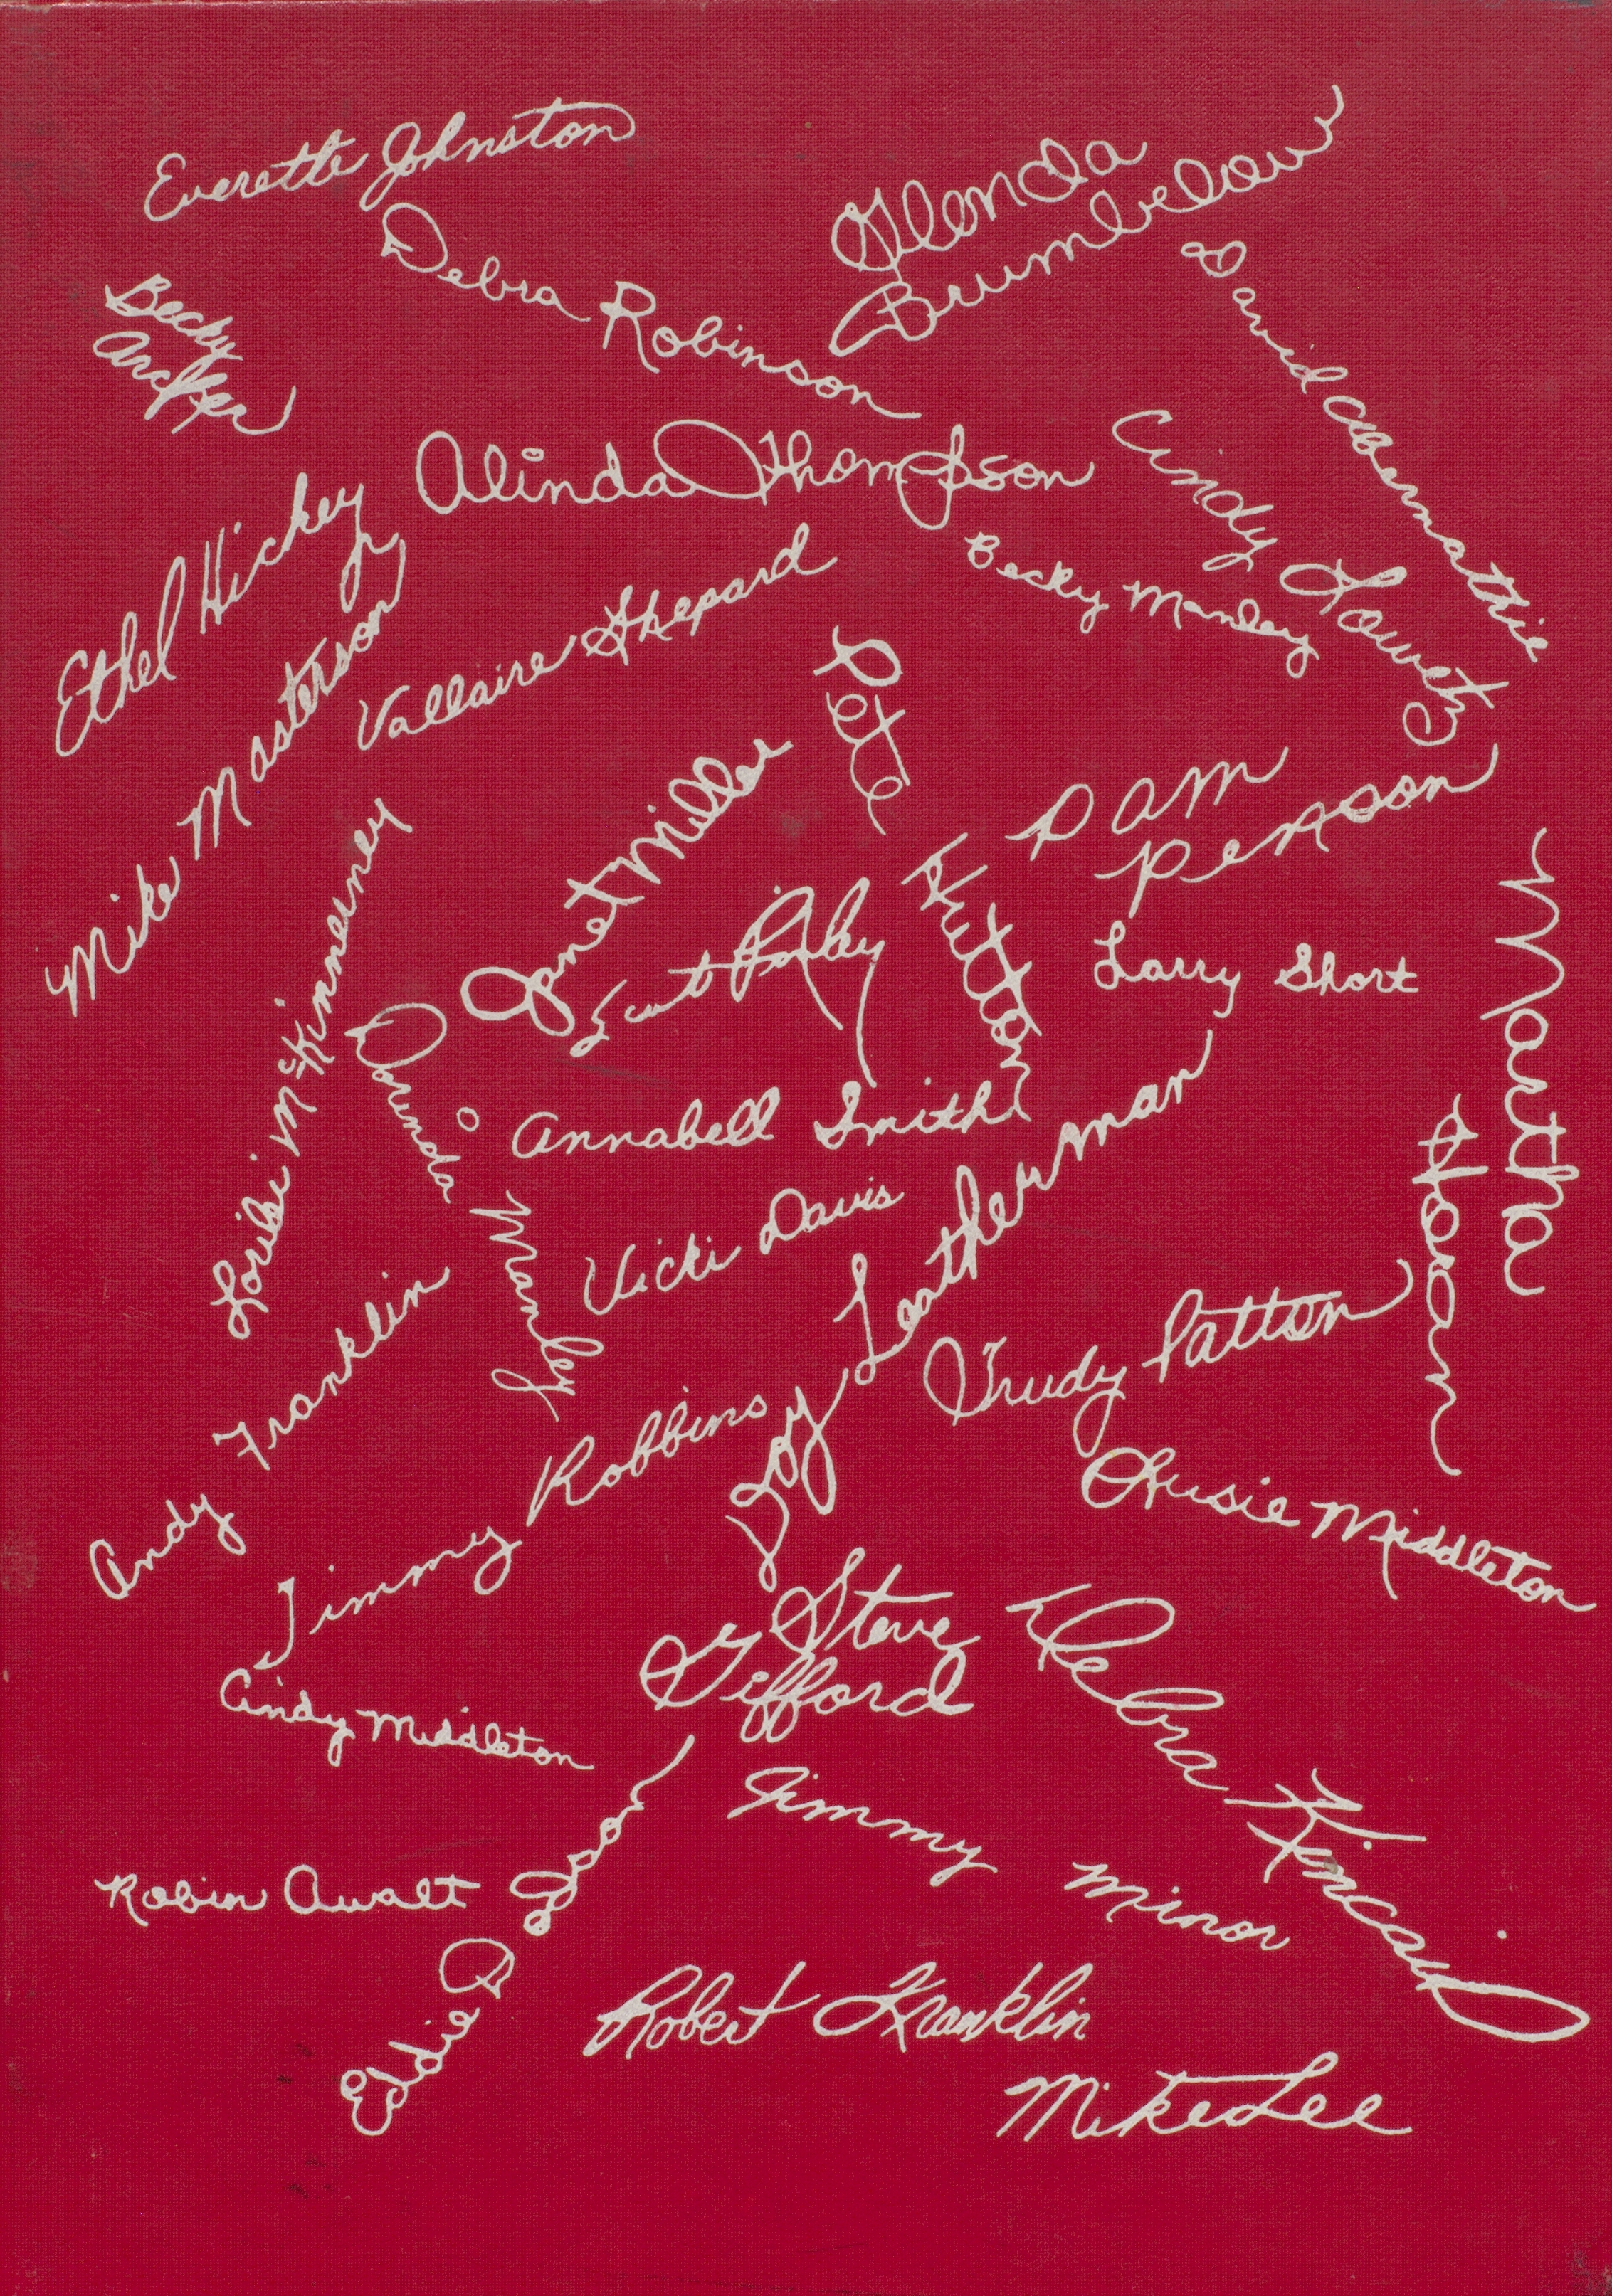 Everette Johnston
Glenda
Brumbelow
Debra Robinson
David Abernathie
Becky
Archer
Alinda Thompson
Cindy Lowety
Ethel Hickey
Becky Manley
Mike Masterson
Vallaire Shepard
Pete Hutton
Janet Miller
Pam
Penson
Martha Hogan
Larry Short
Scott
Lorilei McKinnerney
Dorinda Manley
Annabell Smith
Vicki Davis
Leatherman
Trudy Patton
Andy Franklin
Jimmy Robbins
Susie Middleton
Steve
Gifford
Debra Kincaid
Cindy Middleton
Jimmy Minor
Robin Awalt
Eddie D Goon
Robert Franklin
Mike Lee